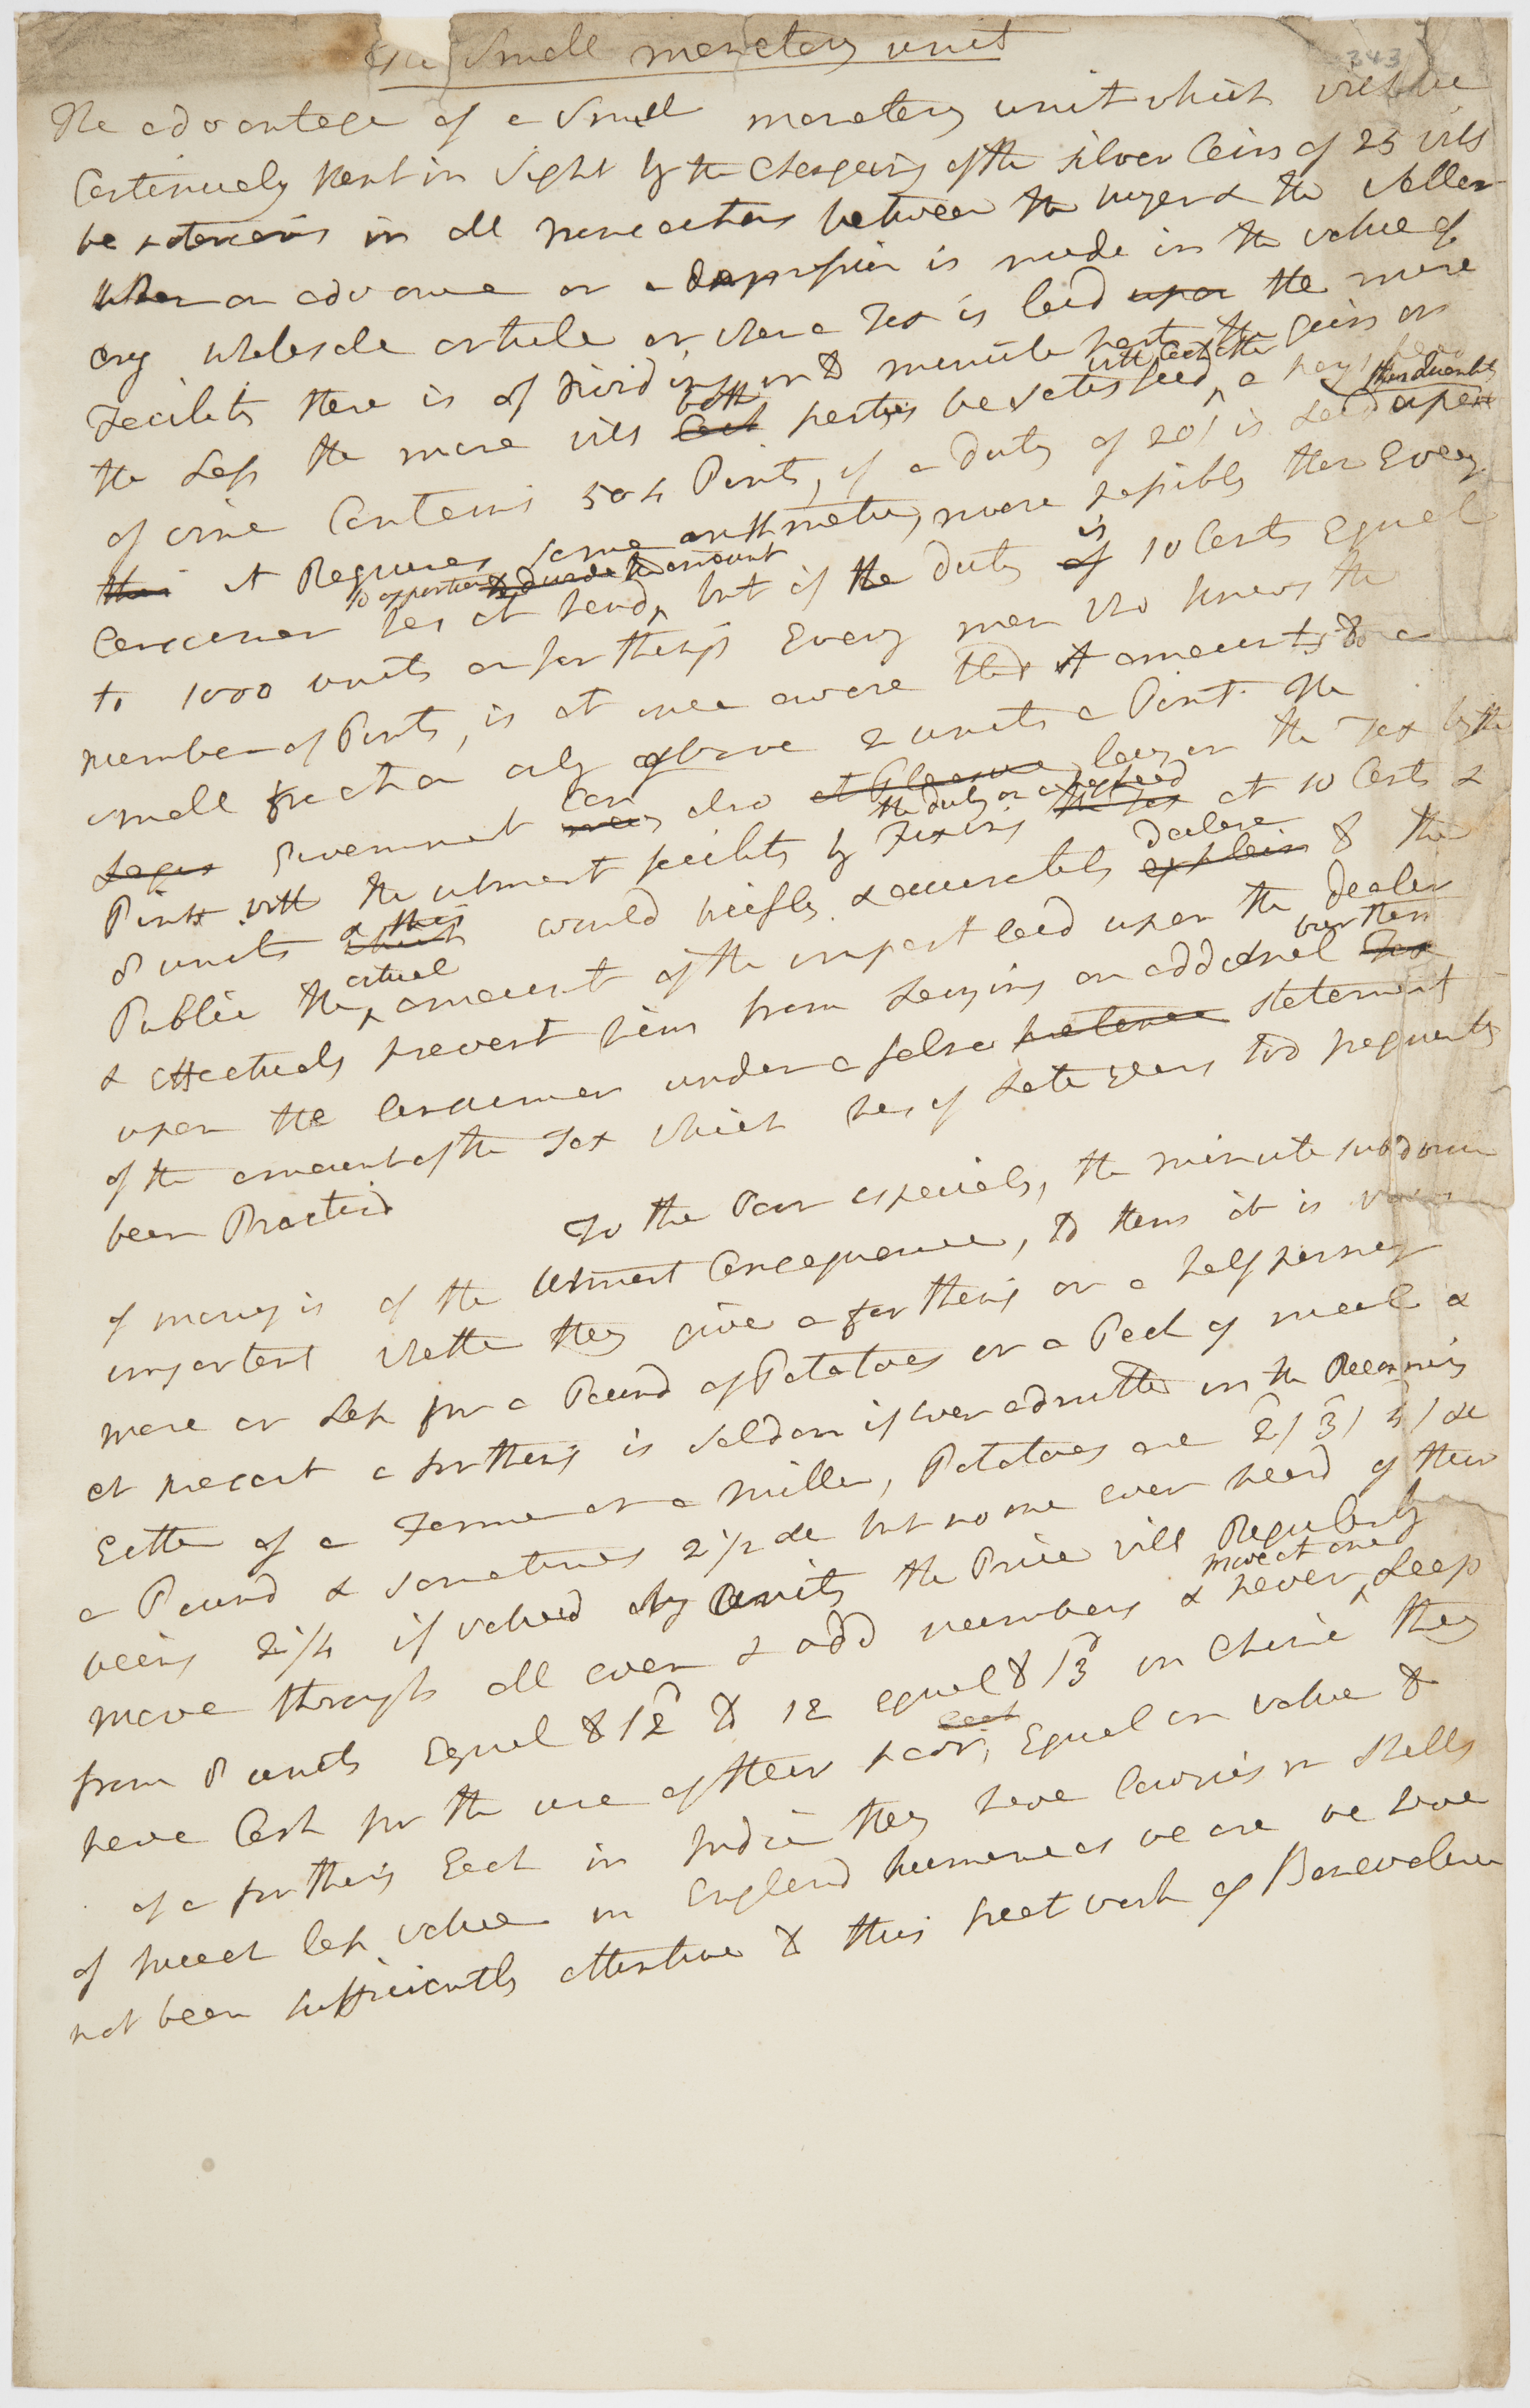 a Small monetary unit
343
The advantage of a Small monetary unit which will be
Continualy kept in Sight by the Changeing of the Silver Coins of 25 will
be in all transactions between the buyer & the Seller
when an advance or a depression is made in the value of
any wholesale article or when a Tax is laid upon the more
Facility there is of dividing in to minute parts the gain or
the Less the more will Each both parties be Satisfied with Each other, a hogshead
of wine Contains 504 Pints, if a duty of 20/ is Laid upon
this it Requires Some arithmetic, more possibly than Every
Consumer has at hand to apportion to divide the amount, but if the duty of is 10 Cents Equal
to 1000 units or farthings Every man who knows the
number of Pints, is at once aware that it amounts to a
small fraction only above 2 units a Pint. The
Government may Can also at Pleasure lay on the Tax by the
Pint with the utmost facility by Fixing the Tax the duty on a hogshead at 10 Cents &
8 units which & this would briefly & accurately explain declare to the
Public the actual amount of the impost laid upon the dealer
& Effectualy prevent him from Laying an additional Tax burthen
upon the Consumer under a false pretence statement
of the amount of the Tax which has of Late years too frequently
been Practisd
To the Poor especialy, the minute subdivision
of money is of the Utmost Consequence, to them it is
important whether they give a farthing or a halfpenny
more or Less for a Pound of Potatoes or a Peck of meal &
at present a farthing is Seldom if ever admitted in the Reckoning
Either of a Farmer or a miller, Potatoes are 2/ 3/ 4/ &c
a Pound & Sometimes 2 1/2 &c but no one ever heard of their
being 2 1/4 if valued by Units the Price will Regularly
move through all even & odd numbers & never more at once Leap
from 8 units Equal to /2d to 12 equal to /3d in China they
have Cash for the use of their poor, each Equal in value to
of a farthing Each in India they have Cowries or Shells
of much less value in England humane as we are we have
not been sufficiently attentive to this great work of Benevolence